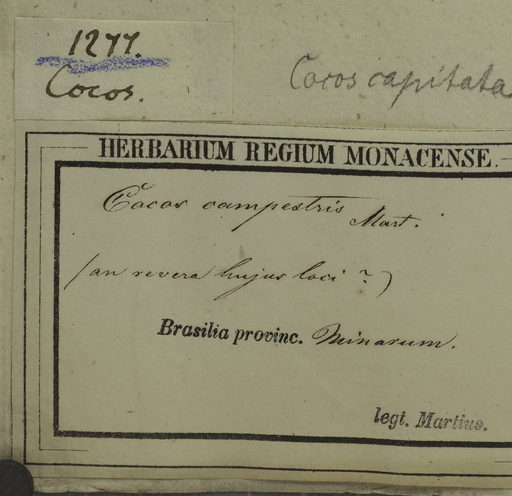 1277.
Cocos.
Cocos capitata
HERBARIUM REGIUM MONACENSE.
Cocos campestris Mart.
(an revera hujus loci?)
Brasilia provinc. Minarum.
legt. Martius.